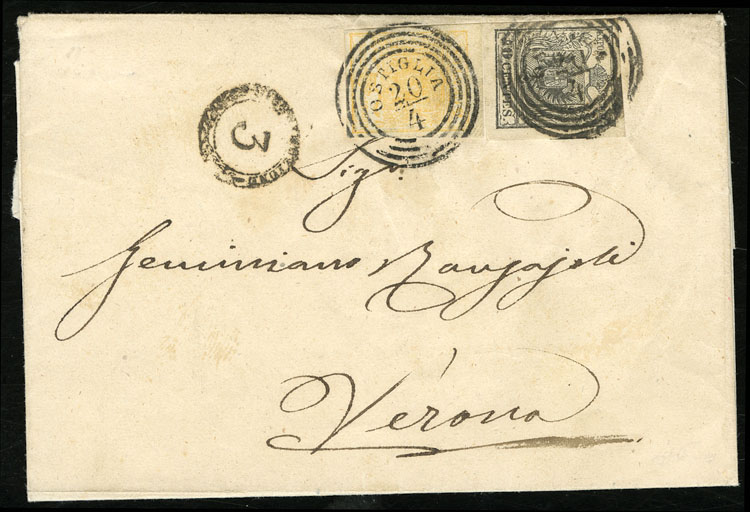 OSTIGLIA
20
4
10 CENTES.
3
Sigr.
Geminiano
Verona